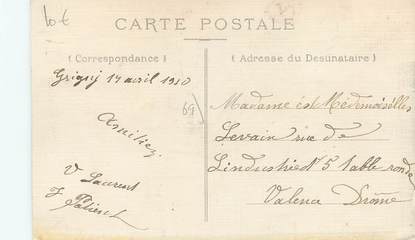 10 €
CARTE POSTALE
( Correspondance )
( Adresse du Destinataire )
Grigny 14 avril 1910
69
Amitiés
V Laurent
J
Madame est Médemoiselles
Levain rue de
Lindustrie N 5 table ronde
Valence Drôme